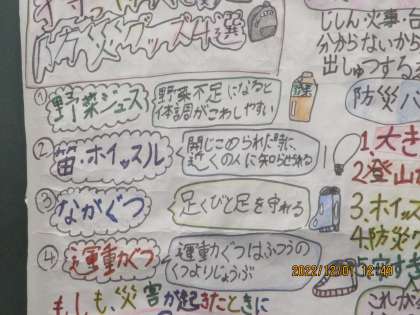 防災グッズ4選
① 野菜ジュース
野菜不足になると
体調がこわしやすい
野菜
② 笛・ホイッスル
閉じこめられた時に
近くの人に知らせれる
③ ながぐつ
足くびと足を守れる
④ 運動ぐつ
運動ぐつはふつうの
くつよりじょうぶ
もしも、災害が起きたときに
じしん・火事・
分からないから
出しゅつする
防災バ
1.大き
2.登山
3.ホイッス
4.防災
これか
2022/12/01 12:49